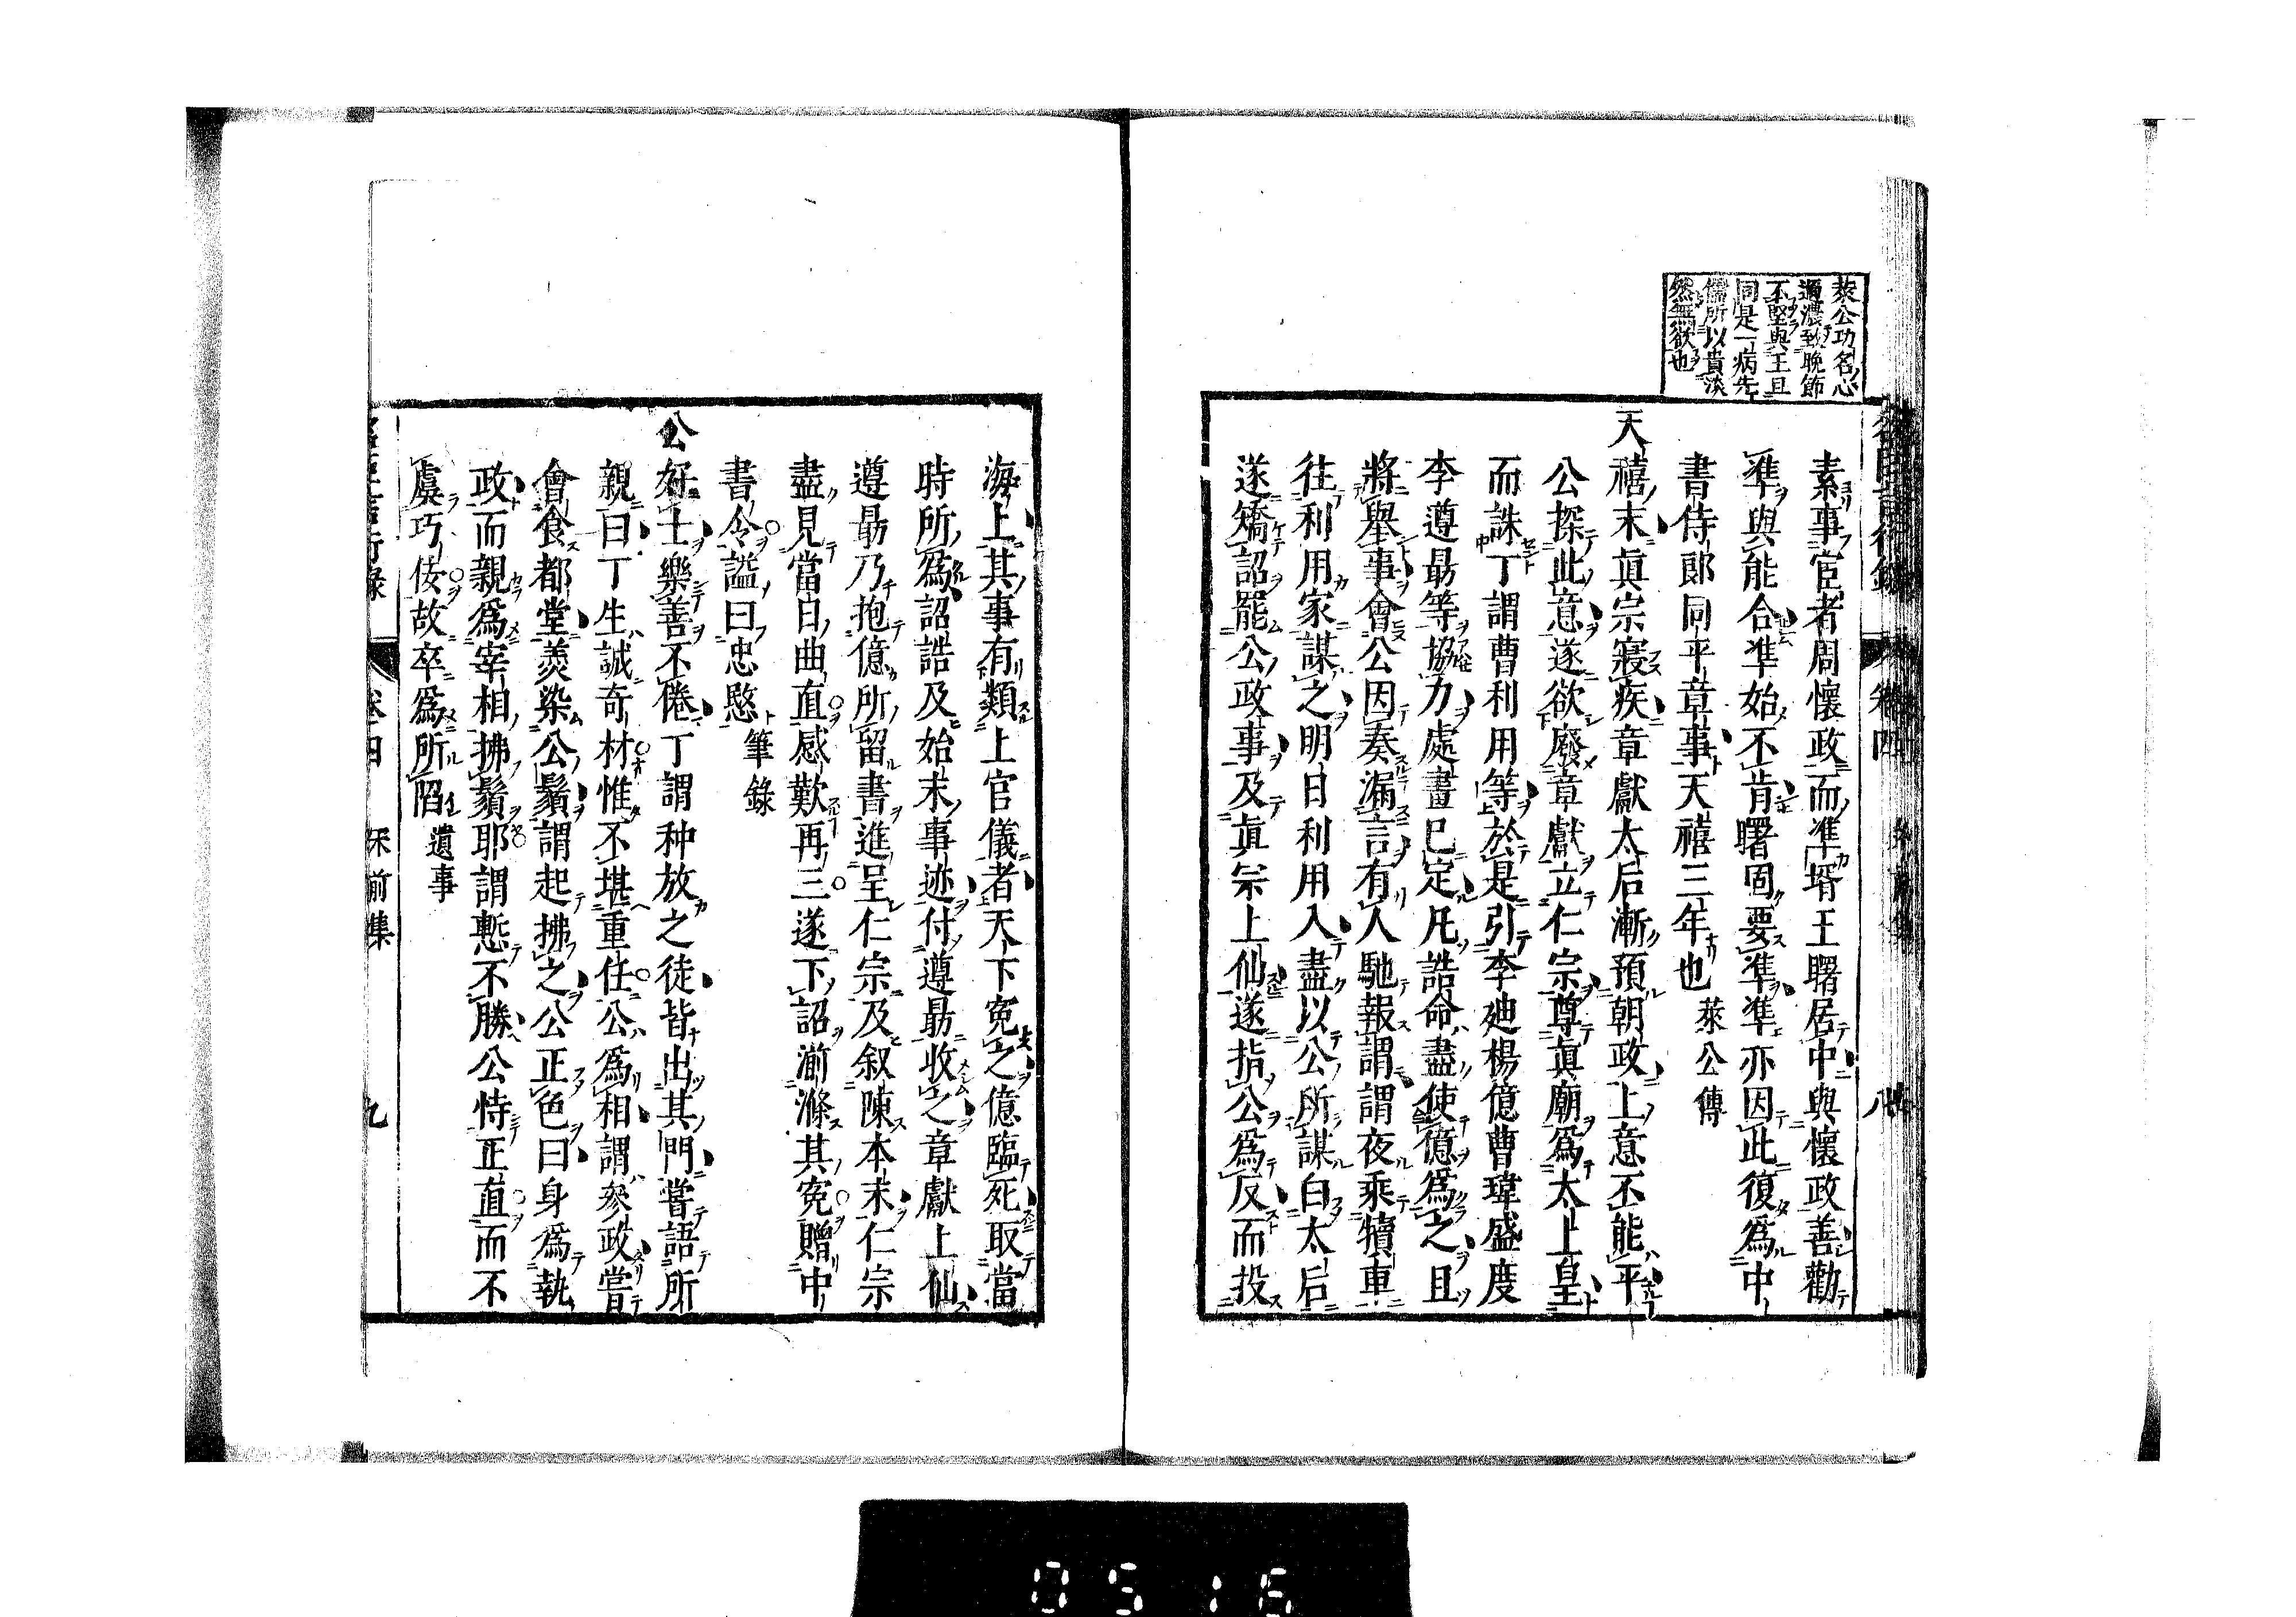 萊公功名心
過濃致晩節
不堅與王旦
同是一病先
儒所以貴淡
然無欲也
名臣言行錄 卷四 八
素事宦者周懷政而準壻王曙居中與懷政善勸
準與能合準始不肯曙固要準準亦因此復爲中
書侍郎同平章事天禧三年也 萊公傳
天禧末眞宗寢疾章獻太后漸預朝政上意不能平
公探此意遂欲廢章獻立仁宗尊眞廟爲太上皇
而誅丁謂曹利用等於是引李廸楊億曹瑋盛度
李遵勗等協力處畫已定凡誥命盡使億爲之且
將舉事會公因奏漏言有人馳報謂謂夜乘犢車
往利用家謀之明日利用入盡以公所謀白太后
遂矯詔罷公政事及眞宗上仙遂指公爲反而投
海上其事有類上官儀者天下寃之億臨死取當
時所爲詔誥及始末事迹付遵勗收之章獻上仙
遵勗乃抱億所留書進呈仁宗及叙陳本末仁宗
盡見當日曲直感歎再三遂下詔湔滌其寃贈中
書令諡曰忠愍 筆錄
公好士樂善不倦丁謂种放之徒皆出其門嘗語所
親曰丁生誠奇材惟不堪重任公爲相謂參政嘗
會食都堂羮染公鬚謂起拂之公正色曰身爲執
政而親爲宰相拂鬚耶謂慙不勝公恃正直而不
虞巧佞故卒爲所陷 遺事
名臣言行錄 卷四 宋前集 九
0516